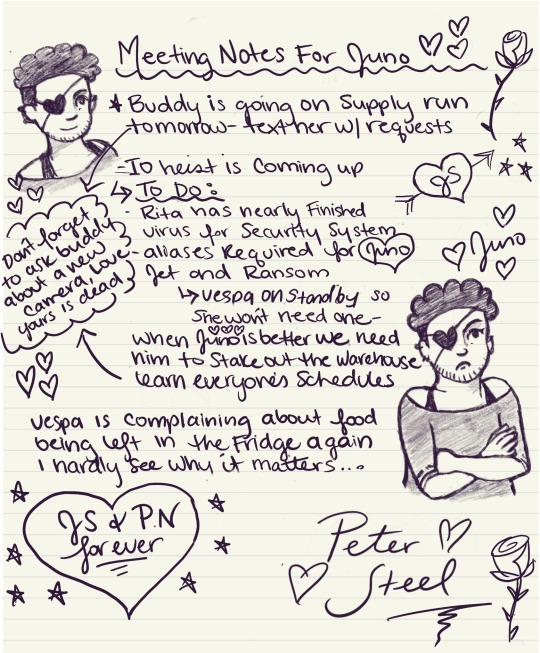 Meeting Notes For Juno
★ Buddy is going on Supply run
tomorrow- text her w/ requests
-IO heist is coming up
↳ To Do:
- Rita has nearly Finished
virus for Security System
- aliases Required for Juno
Jet and Ransom
↳ vespa on standby so
she won't need one-
when Juno is better we need
him to Stake out the warehouse
learn everyone's Schedules
Don't forget
to ask buddy
about a new
camera, love-
yours is dead
JS
Juno
vespa is complaining about food
being left in the Fridge again
I hardly see why it matters....
JS & P.N
forever
Peter
Steel